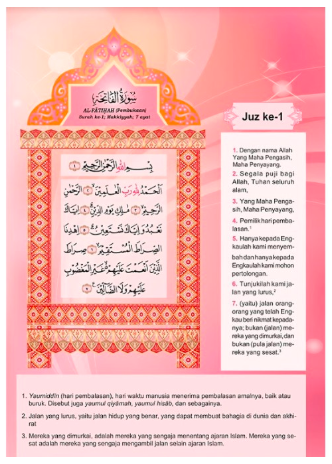 سُورَةُ الْفَاتِحَةِ
AL-FĀTIḤAH (Pembukaan)
Surah ke-1; Makkiyyah, 7 ayat
Juz ke-1
بِسْمِ اللّٰهِ الرَّحْمٰنِ الرَّحِيْمِ ۝١
اَلْحَمْدُ لِلّٰهِ رَبِّ الْعٰلَمِيْنَ ۝٢ الرَّحْمٰنِ
الرَّحِيْمِ ۝٣ مٰلِكِ يَوْمِ الدِّيْنِ ۝٤ اِيَّاكَ
نَعْبُدُ وَاِيَّاكَ نَسْتَعِيْنُ ۝٥ اِهْدِنَا
الصِّرَاطَ الْمُسْتَقِيْمَ ۝٦ صِرَاطَ
الَّذِيْنَ اَنْعَمْتَ عَلَيْهِمْ غَيْرِ الْمَغْضُوْبِ
عَلَيْهِمْ وَلَا الضَّاۤلِّيْنَ ۝٧
1. Dengan nama Allah
Yang Maha Pengasih,
Maha Penyayang.
2. Segala puji bagi
Allah, Tuhan seluruh
alam,
3. Yang Maha Penga-
sih, Maha Penyayang,
4. Pemilik hari pemba-
lasan.¹
5. Hanya kepada Eng-
kaulah kami menyem-
bah dan hanya kepada
Engkaulah kami mohon
pertolongan.
6. Tunjukilah kami ja-
lan yang lurus,²
7. (yaitu) jalan orang-
orang yang telah Eng-
kau beri nikmat kepada-
nya; bukan (jalan) me-
reka yang dimurkai, dan
bukan (pula jalan) me-
reka yang sesat.³
1. Yaumiddīn (hari pembalasan), hari waktu manusia menerima pembalasan amalnya, baik atau
buruk. Disebut juga yaumul qiyāmah, yaumul ḥisāb, dan sebagainya.
2. Jalan yang lurus, yaitu jalan hidup yang benar, yang dapat membuat bahagia di dunia dan akhi-
rat
3. Mereka yang dimurkai, adalah mereka yang sengaja menentang ajaran Islam. Mereka yang se-
sat adalah mereka yang sengaja mengambil jalan selain ajaran Islam.